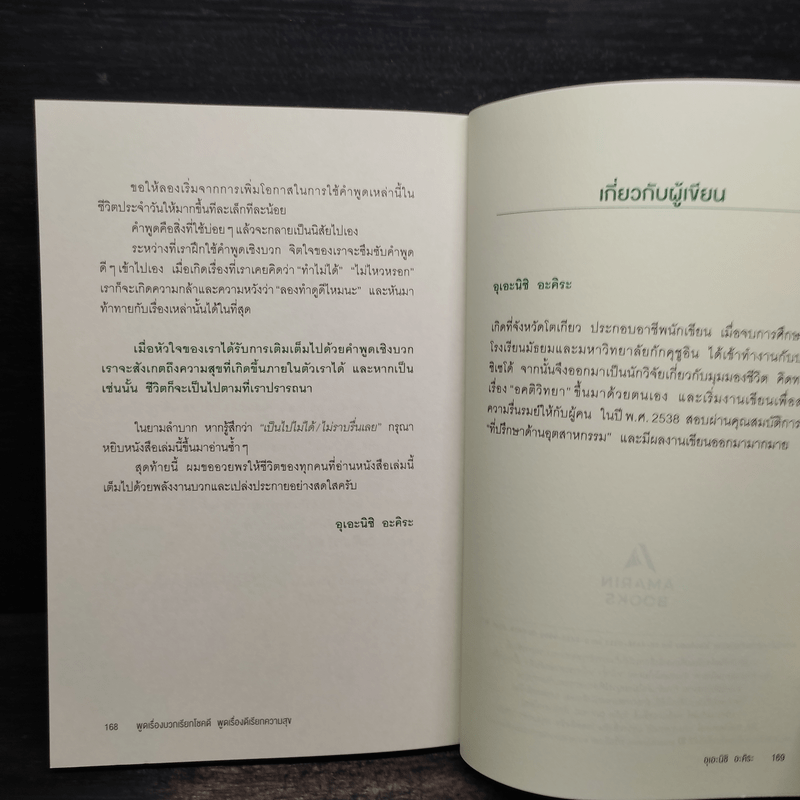 ขอให้ลองเริ่มจากการเพิ่มโอกาสในการใช้คำพูดเหล่านี้ใน
ชีวิตประจำวันให้มากขึ้นทีละเล็กทีละน้อย
คำพูดคือสิ่งที่ใช้บ่อยๆ แล้วจะกลายเป็นนิสัยไปเอง
ระหว่างที่เราฝึกใช้คำพูดเชิงบวก จิตใจของเราจะซึมซับคำพูด
ดีๆ เข้าไปเอง เมื่อเกิดเรื่องที่เราเคยคิดว่า "ทำไม่ได้" "ไม่ไหวหรอก"
เราก็จะเกิดความกล้าและความหวังว่า "ลองทำดูดีไหมนะ" และหันมา
ท้าทายกับเรื่องเหล่านั้นได้ในที่สุด
เมื่อหัวใจของเราได้รับการเติมเต็มไปด้วยคำพูดเชิงบวก
เราจะสังเกตถึงความสุขที่เกิดขึ้นภายในตัวเราได้ และหากเป็น
เช่นนั้น ชีวิตก็จะเป็นไปตามที่เราปรารถนา
ในยามลำบาก หากรู้สึกว่า "เป็นไปไม่ได้/ไม่ราบรื่นเลย" กรุณา
หยิบหนังสือเล่มนี้ขึ้นมาอ่านซ้ำๆ
สุดท้ายนี้ ผมขออวยพรให้ชีวิตของทุกคนที่อ่านหนังสือเล่มนี้
เต็มไปด้วยพลังงานบวกและเปล่งประกายอย่างสดใสครับ
อุเอะนิชิ อะคิระ
168 พูดเรื่องบวกเรียกโชคดี พูดเรื่องดีเรียกความสุข
เกี่ยวกับผู้เขียน
อุเอะนิชิ อะคิระ
เกิดที่จังหวัดโตเกียว ประกอบอาชีพนักเขียน เมื่อจบการศึกษ
โรงเรียนมัธยมและมหาวิทยาลัยกักคุชูอิน ได้เข้าทำงานกับบ
ชิเซโด้ จากนั้นจึงออกมาเป็นนักวิจัยเกี่ยวกับมุมมองชีวิต คิดท
เรื่อง "อคติวิทยา" ขึ้นมาด้วยตนเอง และเริ่มงานเขียนเพื่อส
ความรื่นรมย์ให้กับผู้คน ในปี พ.ศ. 2538 สอบผ่านคุณสมบัติการ
"ที่ปรึกษาด้านอุตสาหกรรม" และมีผลงานเขียนออกมามากมาย
AMARIN
BOOKS
อุเอะนิชิ อะคิระ 169